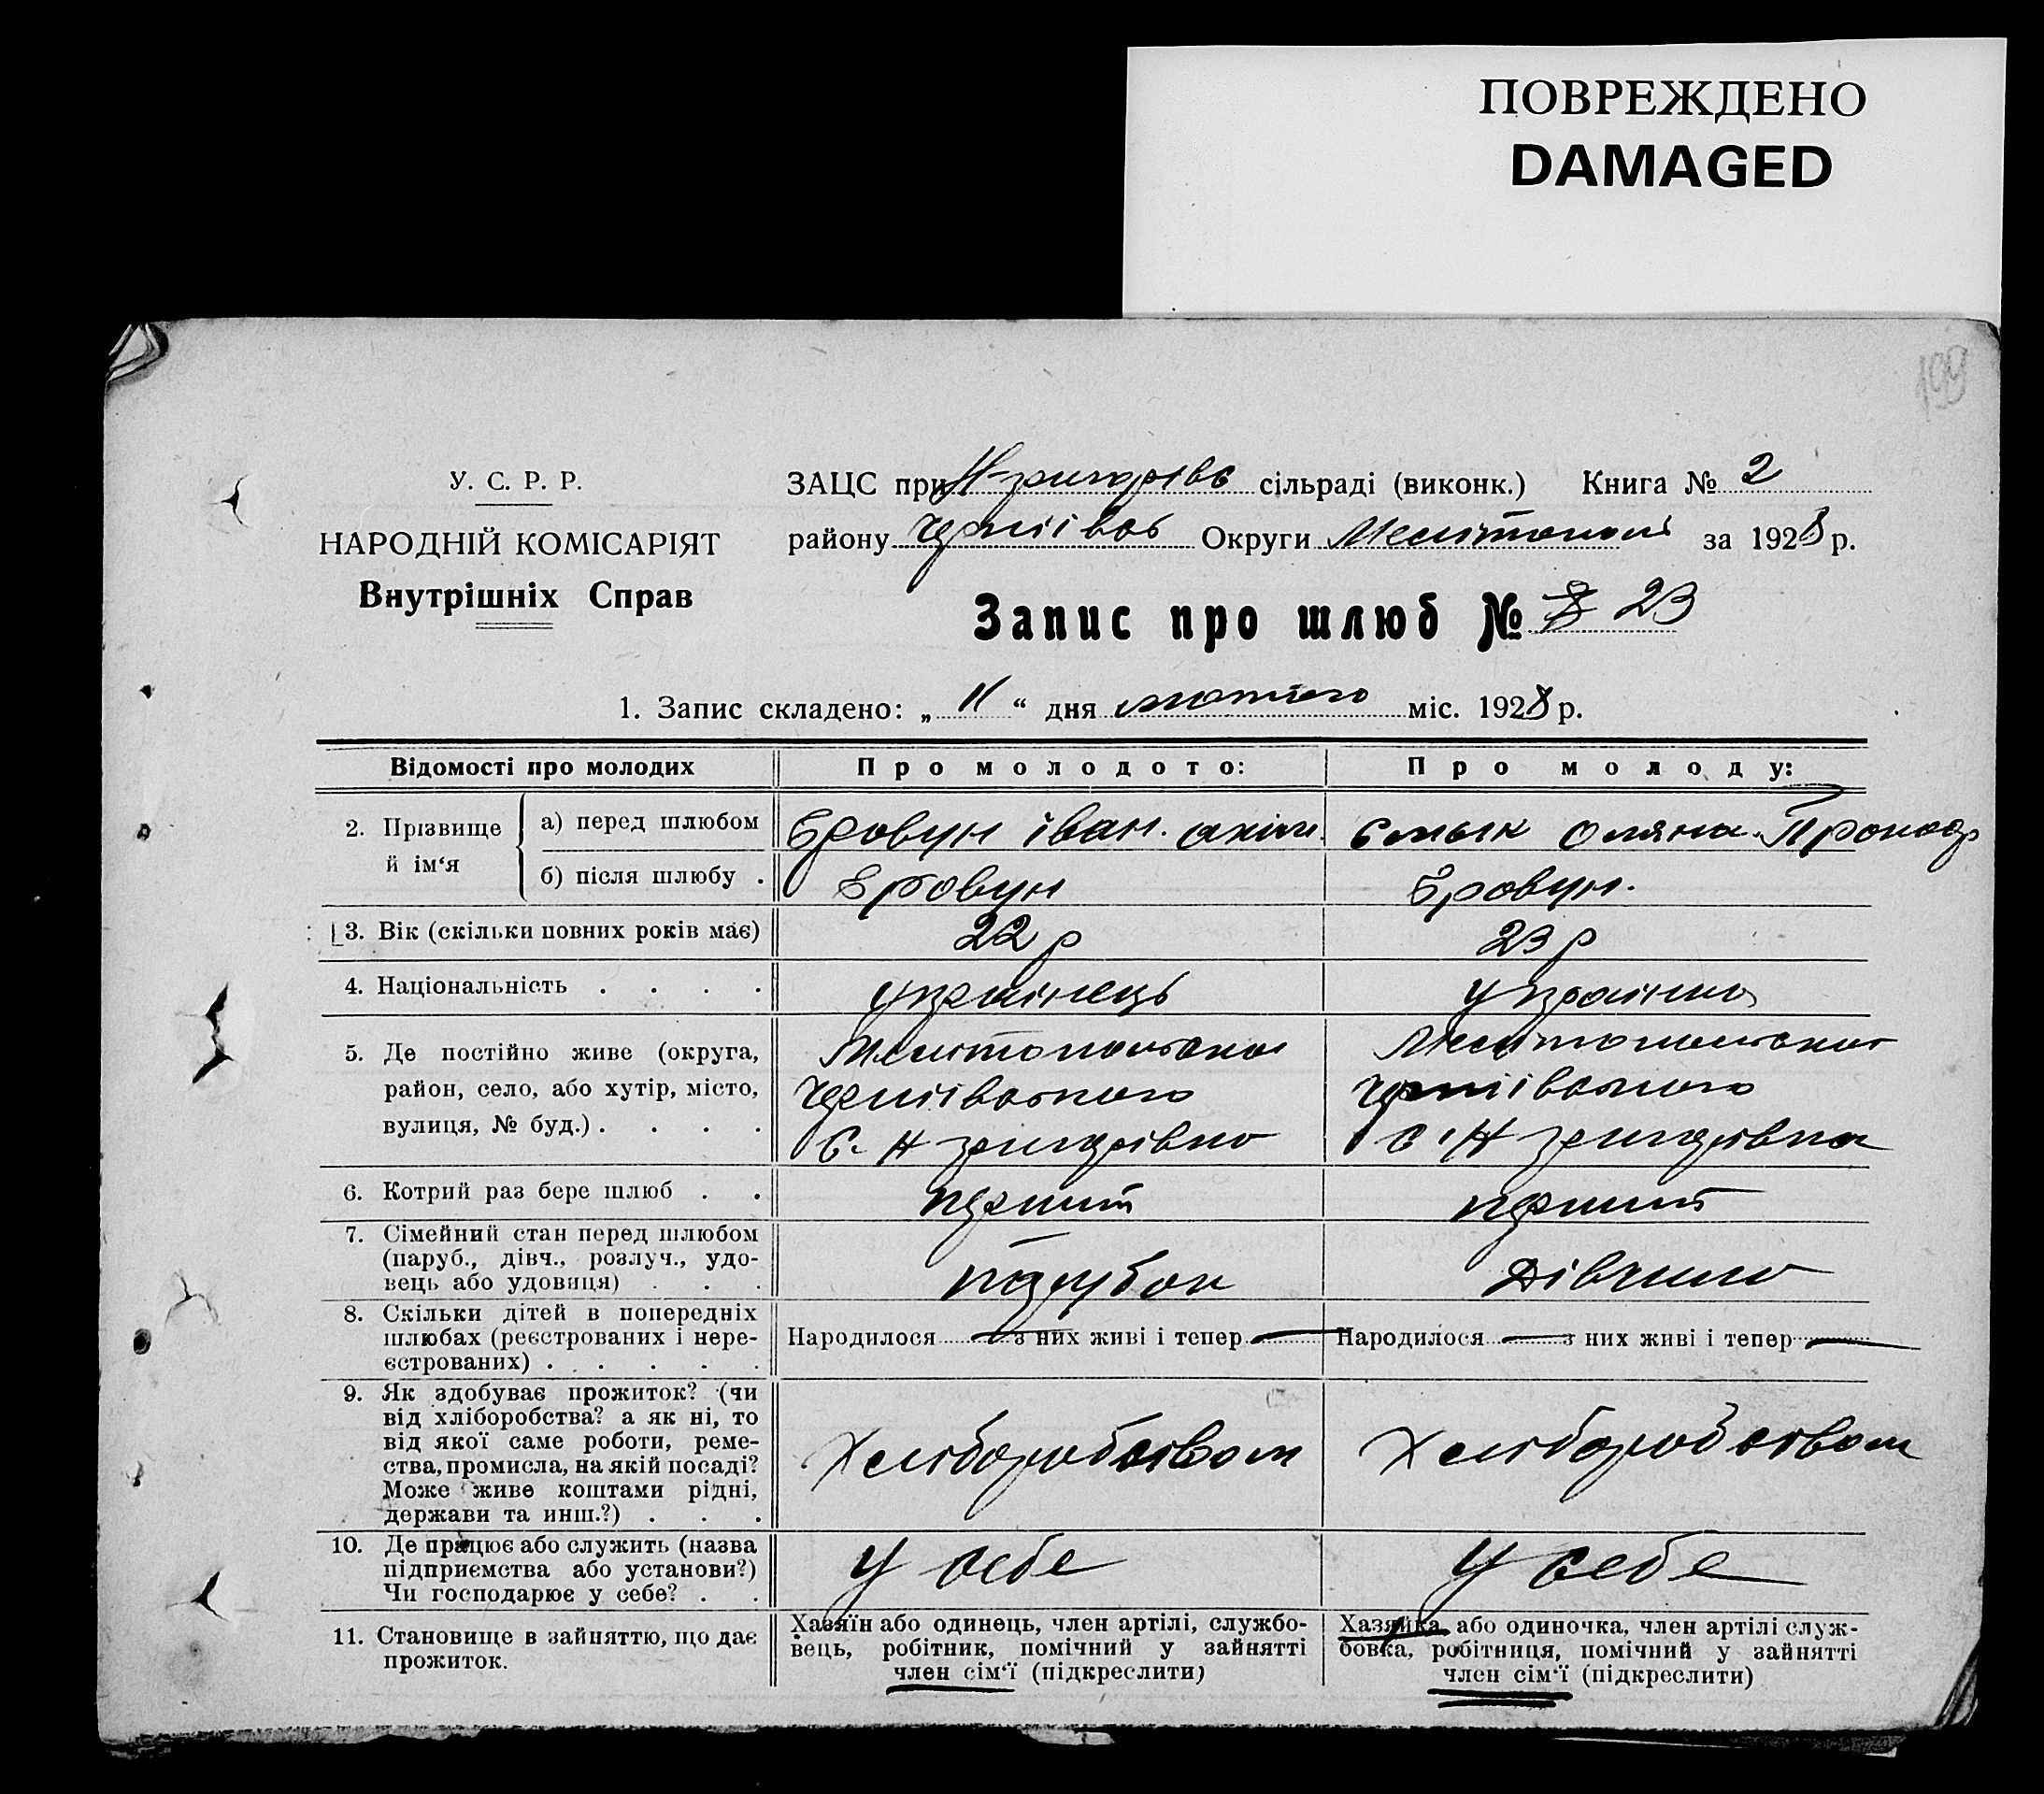 ПОВРЕЖДЕНО
DAMAGED
199
У. С. Р. Р.
НАРОДНІЙ КОМІСАРІЯТ
Внутрішніх Справ
ЗАЦС при Н-григорівс сільраді (виконк.) Книга № 2
району Черніівсь Округи Мелітополь за 1928 р.
Запис про шлюб № 23
1. Запис складено: „ 11 “ дня лютого міс. 1928 р.
Відомості про молодих
Про молодого:
Про молоду:
2. Прізвище й ім‘я
а) перед шлюбом
Єровун іван. акім.
Смык Оляна Прокоф
б) після шлюбу .
Єровун
Єровун.
3. Вік (скільки повних років має)
22 р
23 р
4. Національність . . . .
українець
українка
5. Де постійно живе (округа,
район, село, або хутір, місто,
вулиця, № буд.) . . . .
Мелітопольської
Черніівського
С. Н григорівко
Мелітопольської
Черніівського
с. Н григорівка
6. Котрий раз бере шлюб . .
перший
перший
7. Сімейний стан перед шлюбом
(паруб., дівч., розлуч., удо-
вець або удовиця) . . .
парубок
Дівчино
8. Скільки дітей в попередніх
шлюбах (реєстрованих і нере-
єстрованих) . . . . .
Народилося — з них живі і тепер —
Народилося — з них живі і тепер —
9. Як здобуває прожиток? (чи
від хліборобства? а як ні, то
від якої саме роботи, реме-
ства, промисла, на якій посаді?
Може живе коштами рідні,
держави та инш.?) . . .
Хліборобством
Хліборобством
10. Де працює або служить (назва
підприємства або установи?)
Чи господарює у себе? . .
У себе
У себе
11. Становище в зайняттю, що дає
прожиток.
Хазяїн або одинець, член артілі, службо-
вець, робітник, помічний у зайнятті
член сім‘ї (підкреслити)
Хазяйка або одиночка, член артілі служ-
бовка, робітниця, помічний у зайнятті
член сім‘ї (підкреслити)